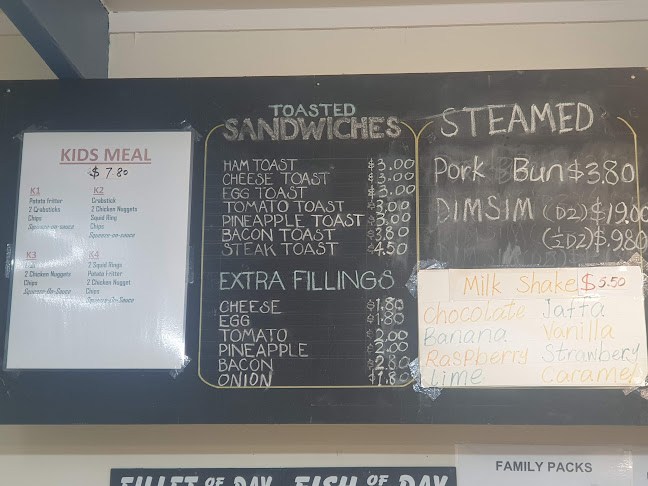 KIDS MEAL
$7.80
K1
Potato Fritter
2 Crabsticks
Chips
Squeeze-on-sauce
K2
Crabstick
2 Chicken Nuggets
Squid Ring
Chips
Squeeze-on-sauce
K3
2 Chicken Nuggets
Chips
Squeeze-On-Sauce
K4
2 Squid Rings
Potato Fritter
2 Chicken Nugget
Chips
Squeeze-On-Sauce
TOASTED
SANDWICHES
HAM TOAST $3.00
CHEESE TOAST $3.00
EGG TOAST $3.00
TOMATO TOAST $3.00
PINEAPPLE TOAST $3.00
BACON TOAST $3.80
STEAK TOAST $4.50
EXTRA FILLINGS
CHEESE $1.80
EGG $1.80
TOMATO $2.00
PINEAPPLE $2.00
BACON $2.80
ONION $1.80
STEAMED
Pork Bun $3.80
DIMSIM (DZ) $19.00
(½DZ) $9.80
Milk Shake $5.50
Chocolate Jaffa
Banana Vanilla
Raspberry Strawberry
Lime Caramel
FILLET OF DAY FISH OF DAY
FAMILY PACKS